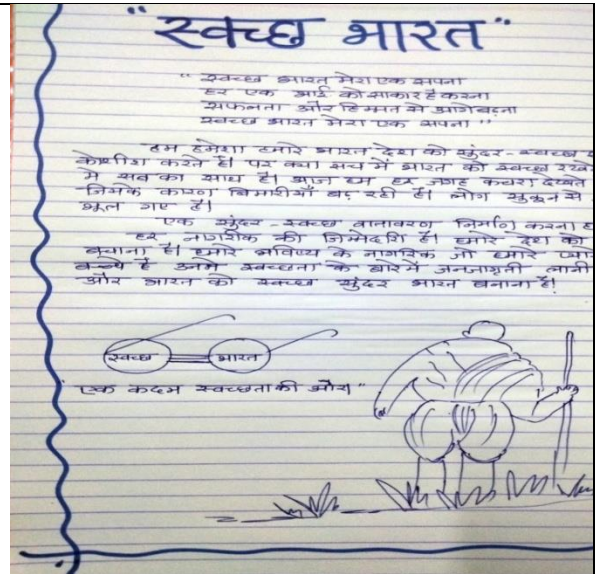 "स्वच्छ भारत"
"स्वच्छ भारत मेरा एक सपना
हर एक भाई को साकार है करना
सफलता और हिम्मत से आगे बढ़ना
स्वच्छ भारत मेरा एक सपना"
हम हमेशा हमारे भारत देश को सुंदर-स्वच्छ
कोशीश करते है। पर क्या सच में भारत को स्वच्छ रखने
में सब का साथ है। आज हम हर जगह कचरा देखते
जिसके कारण बिमारीयाँ बढ़ रही है। लोग सुकून से
भूल गए है।
एक सुंदर-स्वच्छ वातावरण निर्माण करना
हर नागरीक की जिम्मेदारी है। हमारे देश को
बचाना है। हमारे भविष्य के नागरिक जो हमारे
बच्चे है उनमे स्वच्छता के बारेमें जनजागृती लानी
और भारत को स्वच्छ सुंदर भारत बनाना है!
स्वच्छ भारत
"एक कदम स्वच्छता की और।"